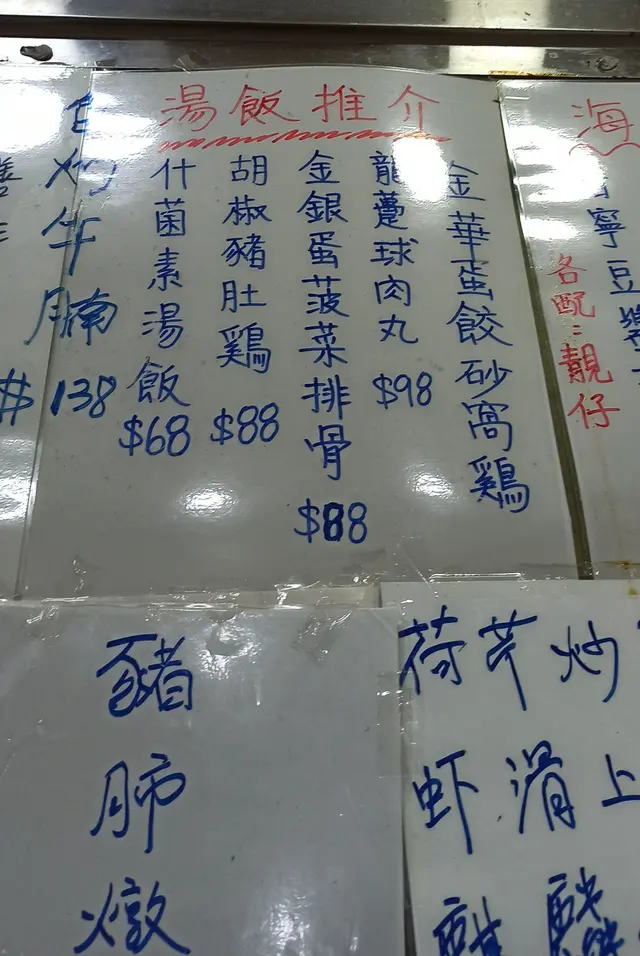 湯飯推介
金華蛋餃砂窩鷄
龍躉球肉丸
$98
金銀蛋菠菜排骨
$88
胡椒豬肚鷄
$88
什菌素湯飯
$68
牛腩
$138
海
寧豆
各配：靚仔
豬肺燉
荷芹炒
虾滑上